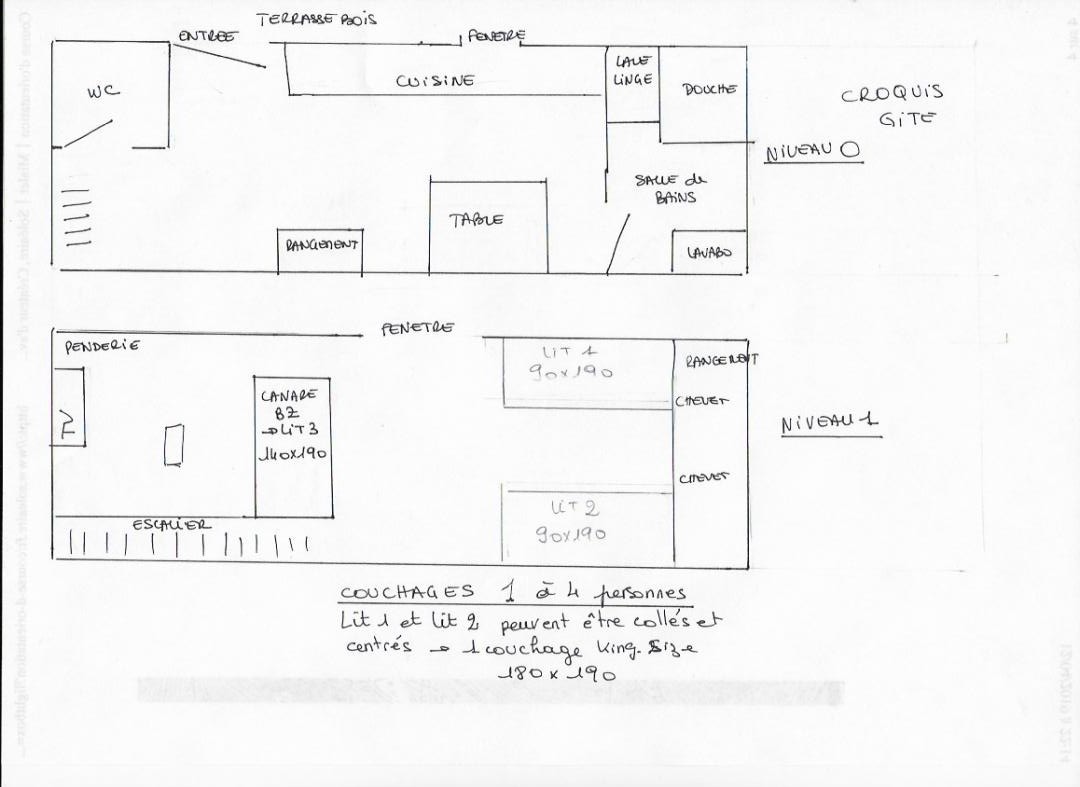 TERRASSE BOIS
ENTREE
FENETRE
WC
CUISINE
LAVE
LINGE
DOUCHE
CROQUIS
GITE
NIVEAU 0
SALLE de
BAINS
TABLE
RANGEMENT
LAVABO
FENETRE
PENDERIE
LIT 1
90x190
RANGEMENT
TV
CANAPE
BZ
→ LIT 3
140x190
CHEVET
NIVEAU 1
CHEVET
LIT 2
90x190
ESCALIER
COUCHAGES 1 à 4 personnes
Lit 1 et lit 2 peuvent être collés et
centrés → 1 couchage King-Size
180 x 190
4 sur 4
12/04/2019 à 22:14